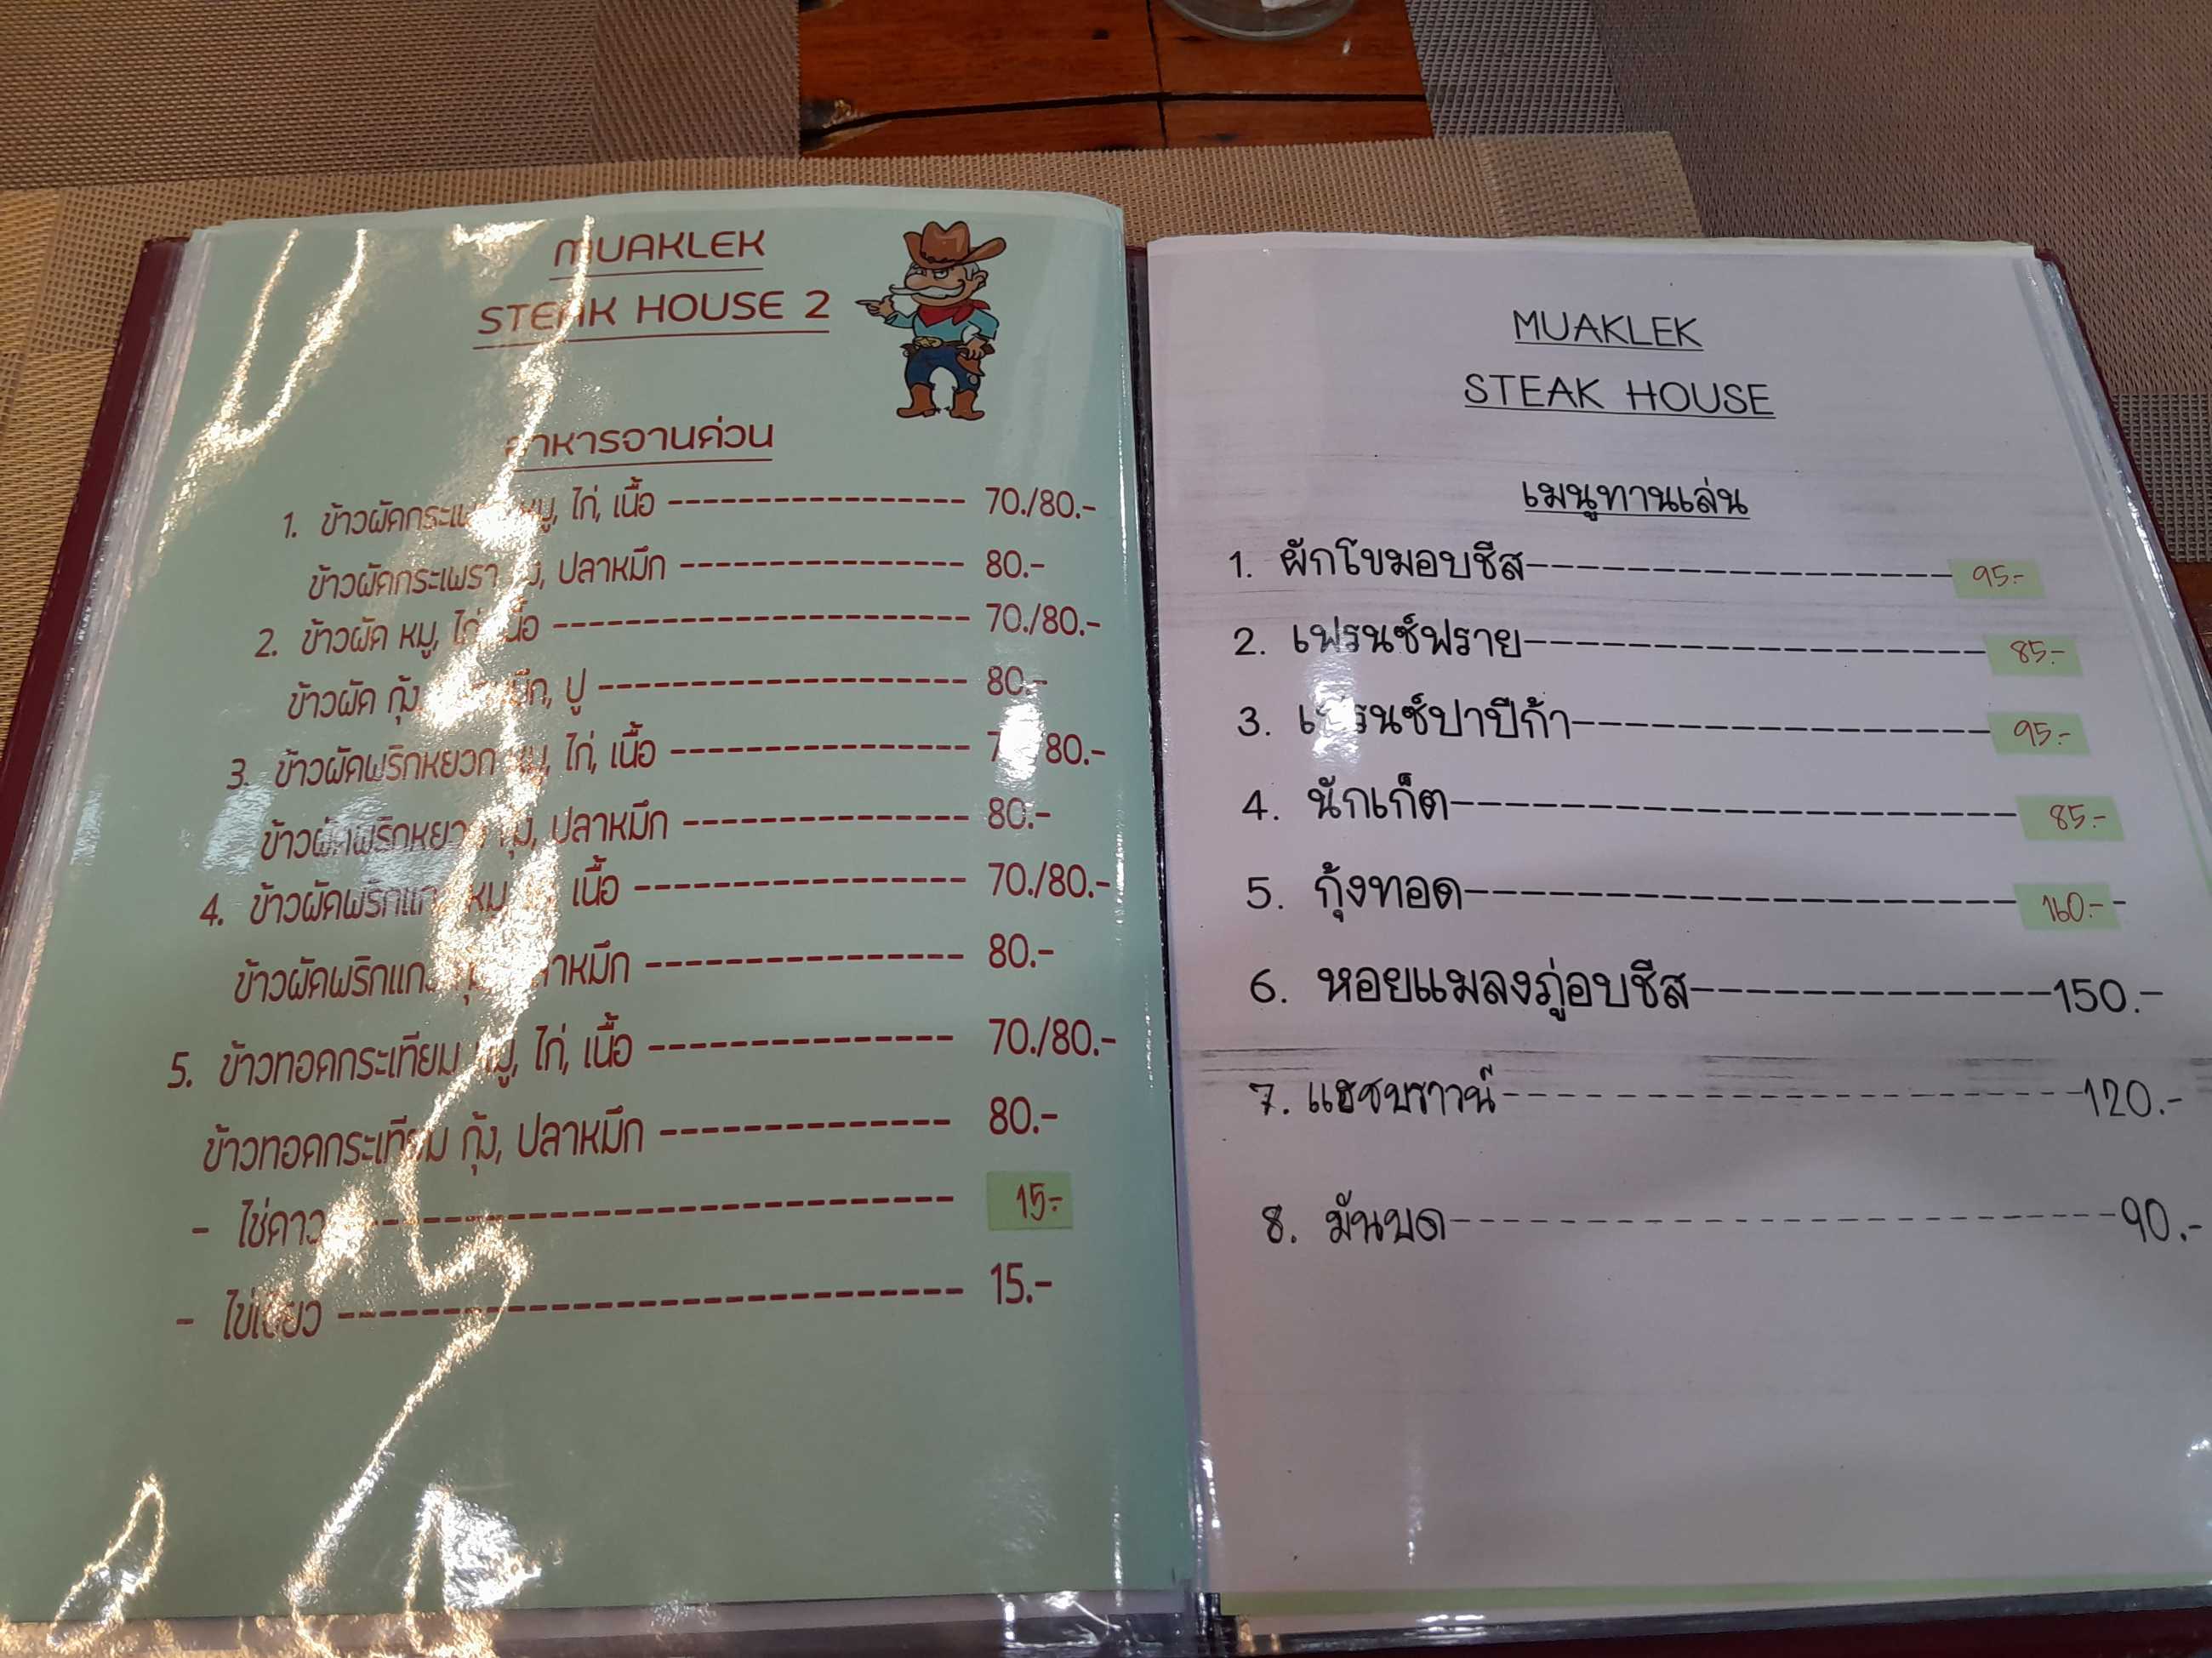 MUAKLEK
STEAK HOUSE 2
อาหารจานด่วน
1. ข้าวผัดกระเพรา หมู, ไก่, เนื้อ ----------------- 70./80.-
ข้าวผัดกระเพรา กุ้ง, ปลาหมึก ---------------- 80.-
2. ข้าวผัด หมู, ไก่, เนื้อ ------------------------ 70./80.-
ข้าวผัด กุ้ง, ปลาหมึก, ปู --------------------- 80.-
3. ข้าวผัดพริกหยวก หมู, ไก่, เนื้อ ----------------- 70./80.-
ข้าวผัดพริกหยวก กุ้ง, ปลาหมึก ---------------- 80.-
4. ข้าวผัดพริกแกง หมู, ไก่, เนื้อ ------------------- 70./80.-
ข้าวผัดพริกแกง กุ้ง, ปลาหมึก ------------------ 80.-
5. ข้าวทอดกระเทียม หมู, ไก่, เนื้อ ---------------- 70./80.-
ข้าวทอดกระเทียม กุ้ง, ปลาหมึก --------------- 80.-
- ไข่ดาว -------------------------------- 15.-
- ไข่เจียว -------------------------------- 15.-
MUAKLEK
STEAK HOUSE
เมนูทานเล่น
1. ผักโขมอบชีส-------------------- 95.-
2. เฟรนช์ฟราย---------------------- 85.-
3. เฟรนช์ปาปีก้า-------------------- 95.-
4. นักเก็ต--------------------------- 85.-
5. กุ้งทอด-------------------------- 160.--
6. หอยแมลงภู่อบชีส----------------150.-
7. แฮชบราวน์---------------------------120.-
8. มันบด-------------------------------90.-